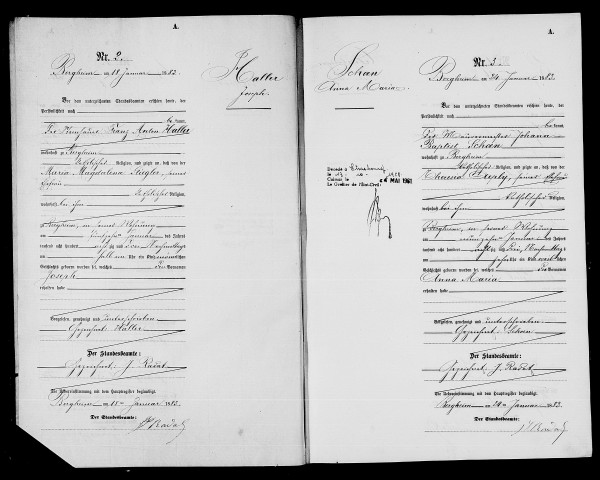 A.
Nr. 2.
Haller
Joseph.
Bergheim am 11 Januar 1883.
Vor dem unterzeichneten Standesbeamten erschien heute, der
Persönlichkeit nach
be kannt,
Franz Anton Haller
wohnhaft zu Bergheim
katholischer Religion, und zeigte an, daß von der
Maria Magdalena
katholischer Religion,
wohnhaft bei ihm
zu Bergheim, in seiner Wohnung
am Januar des Jahres
tausend acht hundert achtzig und drei Vormittags
um halb Uhr ein Kind männlichen
Geschlechts geboren worden sei, welches die Vornamen
Joseph
erhalten habe
Vorgelesen, genehmigt und unterschrieben
Gezeichnet: Haller
Der Standesbeamte:
Gezeichnet: J. Radat
Die Uebereinstimmung mit dem Hauptregister beglaubigt.
Bergheim am 11ten Januar 1883.
Der Standesbeamte:
J. Radat
A.
Nr. 3.
Schan
Anna Maria.
Bergheim am 24 Januar 1883.
Vor dem unterzeichneten Standesbeamten erschien heute, der
Persönlichkeit nach
be kannt,
Johann
Baptist Schan
wohnhaft zu Bergheim
katholischer Religion, und zeigte an, daß von der
katholischer Religion,
wohnhaft bei ihm
zu Bergheim, in seiner Wohnung
am Januar des Jahres
tausend acht hundert achtzig und drei, Nachmittags
um Uhr ein Kind weiblichen
Geschlechts geboren worden sei, welches die Vornamen
Anna Maria
erhalten habe
Vorgelesen, genehmigt und unterschrieben
Gezeichnet: Schan
Der Standesbeamte:
Gezeichnet: J. Radat
Die Uebereinstimmung mit dem Hauptregister beglaubigt.
Bergheim am 24ten Januar 1883.
Der Standesbeamte:
J. Radat
Décédé à Strasbourg
le
Colmar, le MAI 1961
Le Greffier de l'Etat-Civil: